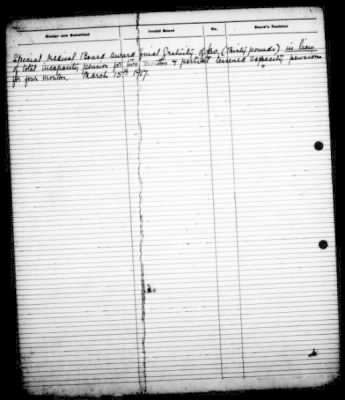 Matter now Submitted Invalid Board No. Board's Decision
Special Medical Board award final Gratuity of £30. (Thirty pounds) in lieu
of total incapacity pension for two months & partial lessened capacity pension
for four months. March 15th 1917.